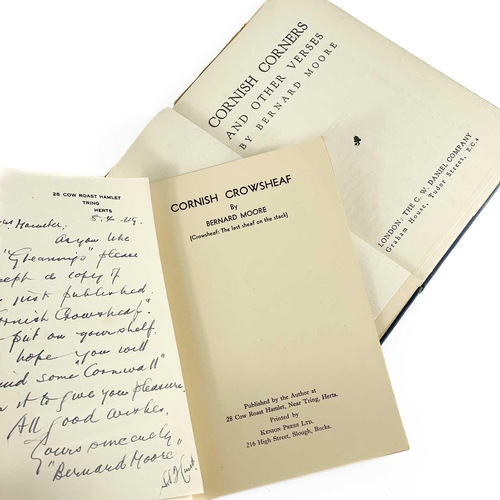 CORNISH CORNERS
AND OTHER VERSES
BY BERNARD MOORE
LONDON: THE C. W. DANIEL COMPANY
Graham House, Tudor Street, E.C.4
28 COW ROAST HAMLET
TRING
HERTS
5.4.49.
As you like
"Gleanings" please
a copy of
just published
Cornish Crowsheaf".
put on your shelf.
hope you will
some "Cornwall"
it to give you pleasure.
All good wishes,
Yours sincerely
"Bernard Moore"
CORNISH CROWSHEAF
By
BERNARD MOORE
(Crowsheaf: The last sheaf on the stack)
Published by the Author at
28 Cow Roast Hamlet, Near Tring, Herts.
Printed by
KENION PRESS LTD.
216 High Street, Slough, Bucks.